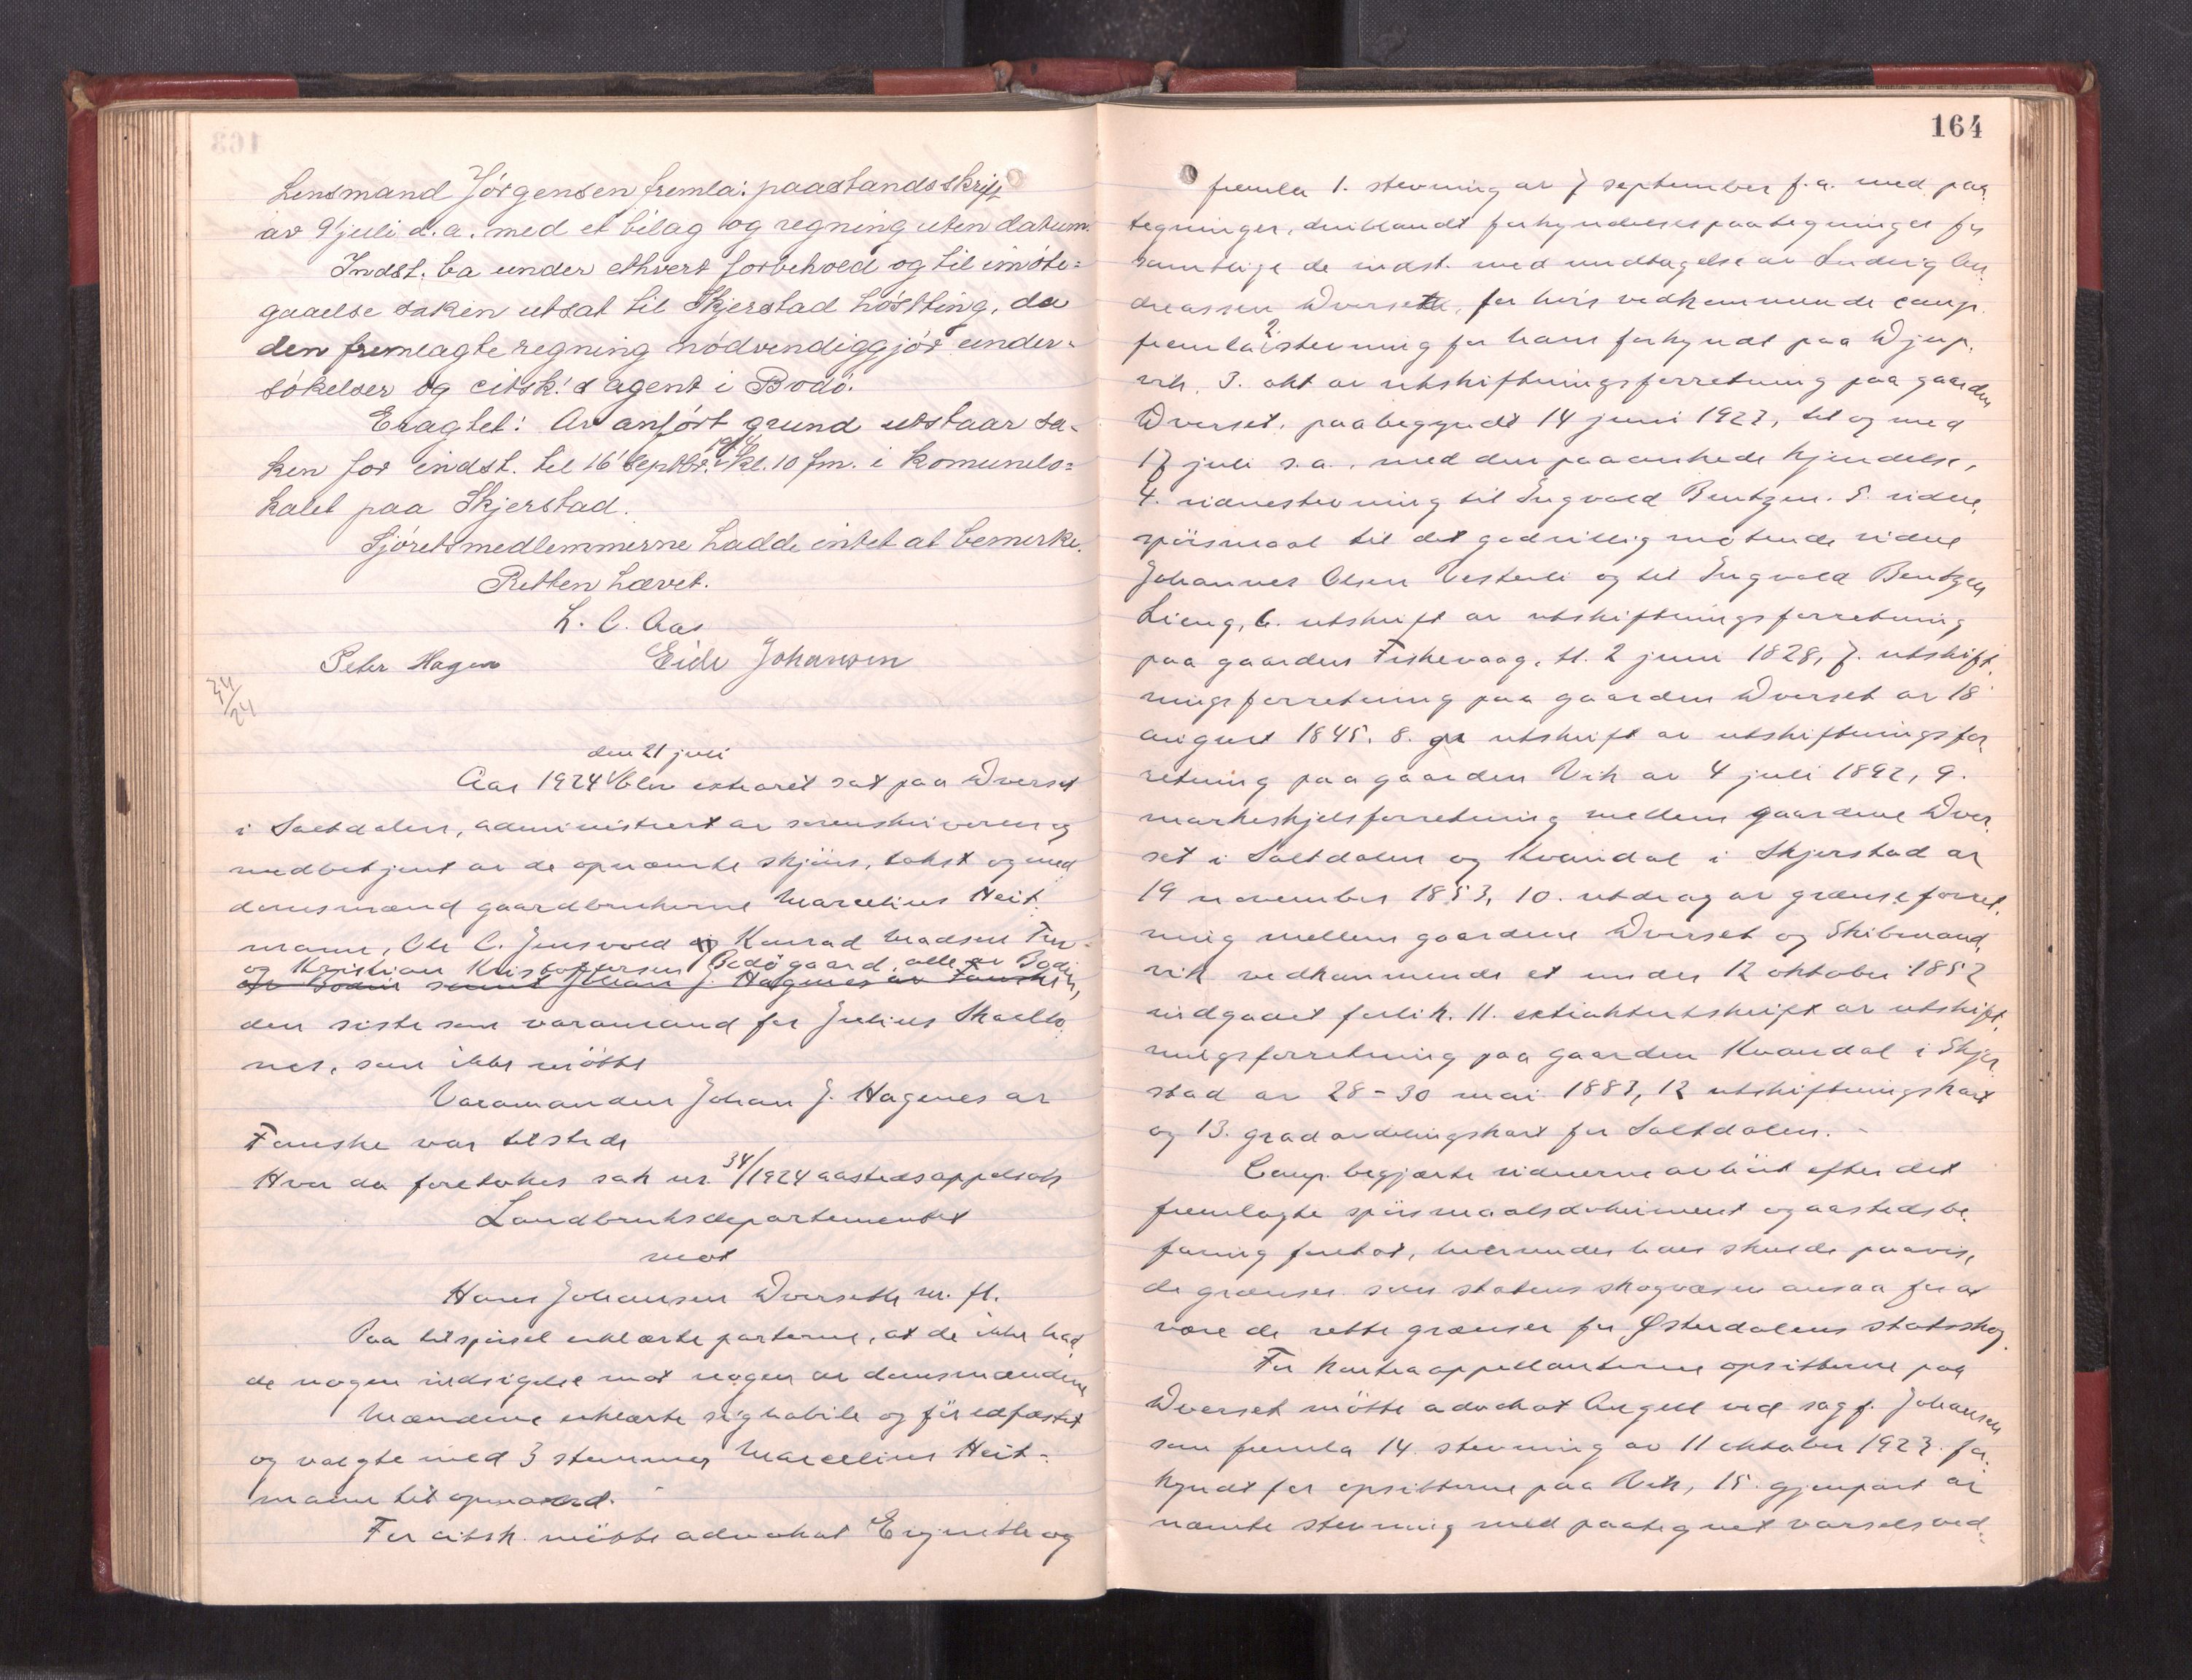 Lensmand Jörgensen fremla: paastandsskrift
av 9 juli d.a. med et bilag og regning uten datum.
Indst. ba under ethvert forbehold og til imöte-
gaaelse saken utsat til Skjerstad höstting, da
den fremlagte regning nödvendiggjör under-
sökelser og citsk.'s agent i Bodö.
Eragtet: Av anfört grund utstaar sa-
ken for indst. til 16 septbr. 1924 kl. 10 fm. i komunelo-
kalet paa Skjerstad.
Sjöretsmedlemmerne hadde intet at bemerke.
Retten hævet.
L. C. Aas
Peter Hagen Eide Johansen
34/24
den 21 juli
Aar 1924 blev extraret sat paa Dverset
i Saltdalen, administrert av sorenskriveren og
medbetjent av de opnævnte skjöns, takst og med
domsmænd gaardbrukerne Marcelius Heit-
mann, Ole C. Jensvold og Konrad Madsen Tver-
og Kristian Kristoffersen Bodøgaard, alle av Bodin
av Bodin samt Johan J. Hagenes av Fauske,
den siste som varamand for Julius Skaollo
nes, som ikke mötte
Varamanden Johan J. Hagenes av
Fauske var tilstede
Hvor da foretokes sak nr. 34/1924 aastedsappelsak
Landbruksdepartementet
mot
Hans Johansen Dverseth m. fl.
Paa tilspörsel erklærte parterne, at de ikke had
de nogen indsigelse mot nogen av domsmændene
Mændene erklærte sig habile og før edfæstet
og valgte med 3 stemmer Marcelius Heit-
mann til opmand.
For citsk. mötte advokat Erjnith og
164
fremla 1. stevning av 7 september f.a. med paa
tegninger, deriblandt forkyndelsespaategninger for
samtlige de indst. med undtagelse av Ludvig An
dreassen Dverseth, for hvis vedkommende comp.
fremla 2. stevning for ham forkyndt paa Djup-
vik, 3. akt av utskiftningsforretning paa gaarden
Dverset, paabegyndt 14 juni 1923, til og med
17 juli s.a., med den paaankede kjendelse,
4. vidnestevning til Ingvald Bentzen. 5. vidne,
spörsmaal til det godvillig mötende vidne
Johannes Olsen Vesterli og til Ingvald Bentzen
Lieng, 6. utskrift av utskiftningsforretning
paa gaarden Fiskevaag, tl. 2 juni 1828, 7. utskift
ningsforretning paa gaarden Dverset av 18
august 1845. 8. utskrift av utskiftningsfor
retning paa gaarden Vik av 4 juli 1892, 9.
markeskjelsforretning mellem gaardene Dver
set i Saltdalen og Kvandal i Skjerstad av
19 november 1853, 10. utdrag av grænseforret
ning mellem gaardene Dverset og Skibmand
vik vedkommende et under 12 oktober 1852
indgaaet forlik. 11. extraktutskrift av utskift
ningsforretning paa gaarden Kvandal i Skjer
stad av 28-30 mai 1883, 12 utskiftningskart
og 13. gradavdelingskart for Saltdalen. -
Comp. begjærte vidnerne avhört efter det
fremlagte spörsmaalsdokument og aastedsbe
faring foretat, hvorunder han skulde paavise
de grænser som statens skogvæsen ansaa for at
være de rette grænser for Østerdalens statsskog
For kontraappellanterne opsitterne paa
Dverset mötte advokat Angell ved sagf. Johansen
som fremla 14. stevning av 11 oktober 1923 for
kyndt for opsitterne paa Vik, 15. gjenpart av
nævnte stevning med paategnet varselsved-